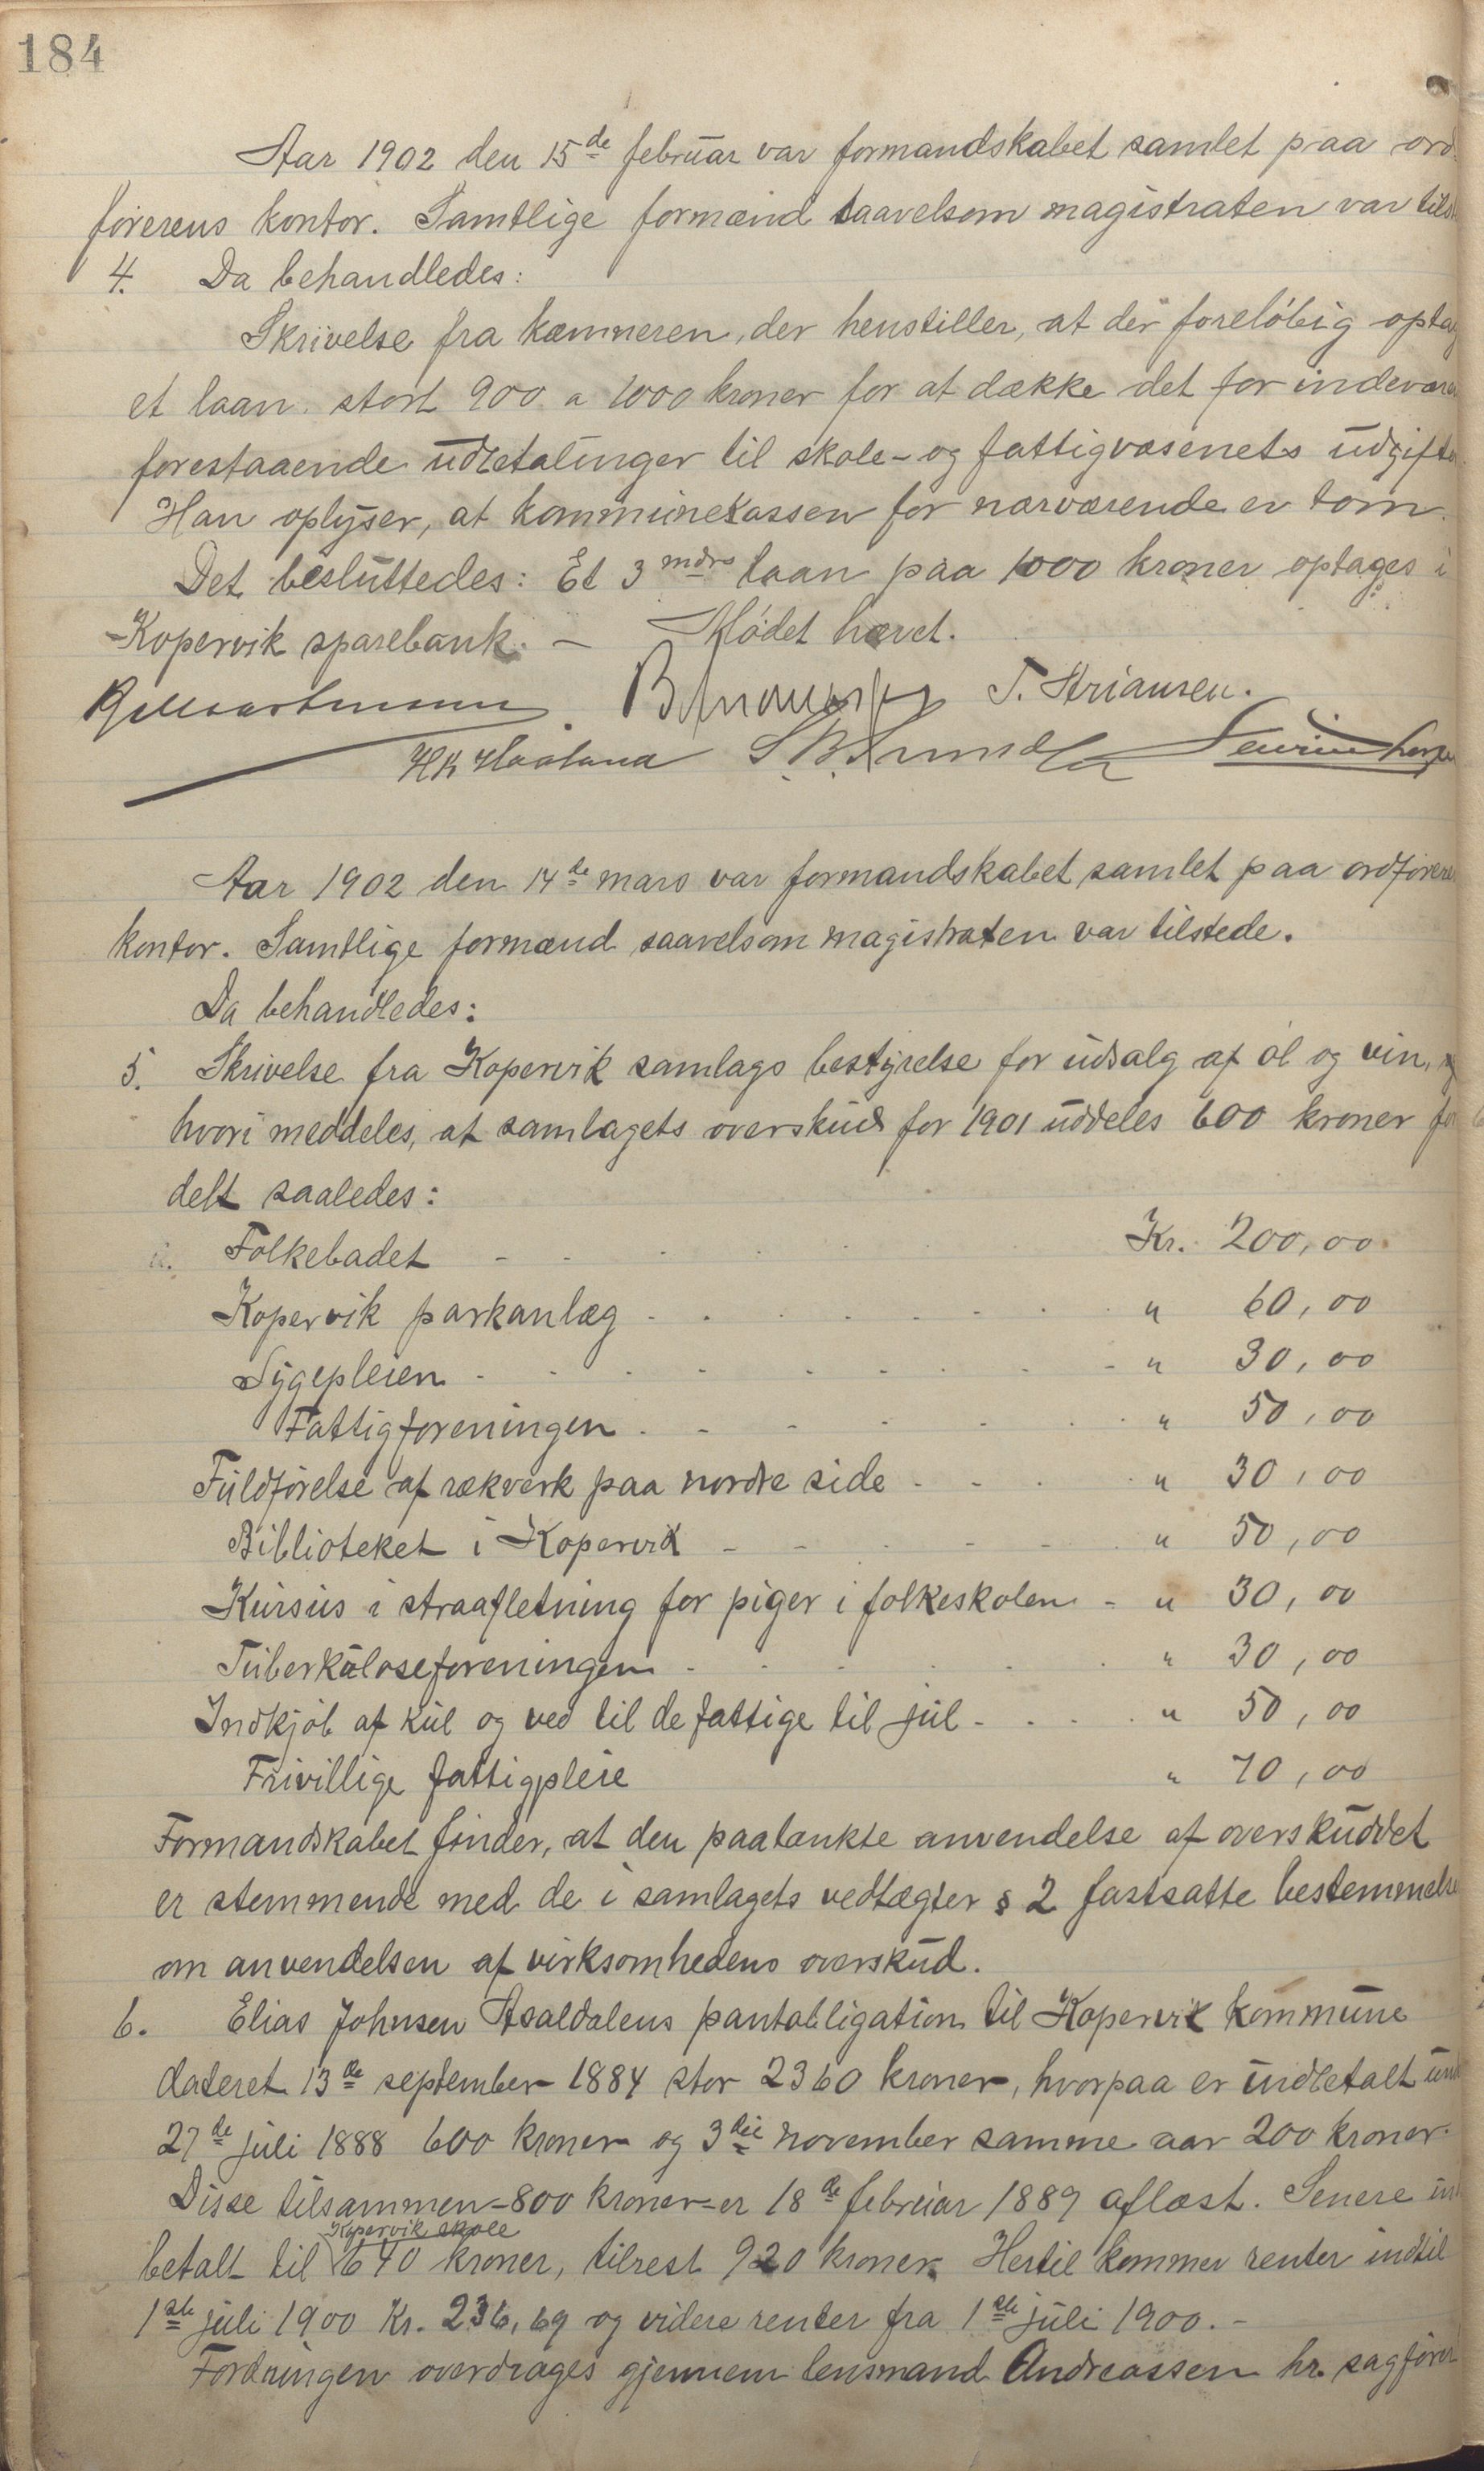 184
Aar 1902 den 15de februar var formandskabet samlet paa ord
førerens kontor. Samtlige formænd saavelsom magistraten var tils
4. Da behandledes:
Skrivelse fra kæmneren, der henstiller, at der foreløbig optag
et laan stort 900 a 1000 kroner for at dække det for indevære
forestaaende udbetalinger til skole- og fattigvæsenets udgifte
Han oplyser, at kommunekassen for nærværende er tom.
Det besluttedes: Et 3 mdrs laan paa 1000 kroner optages i
Kopervik sparebank. – Mødet hævet.
T. Kriansen.
HK Haaland
Aar 1902 den 14de mars var formandskabet samlet paa ordførere
kontor. Samtlige formænd saavelsom magistraten var tilstede.
Da behandledes:
5. Skrivelse fra Kopervik samlags bestyrelse for udsalg af øl og vin,
hvori meddeles, at samlagets overskud for 1901 uddeles 600 kroner for
delt saaledes:
Folkebadet - - Kr. 200,00
Kopervik parkanlæg " 60,00
Sygepleien " 30,00
Fattigforeningen " 50,00
Fuldførelse af rækverk paa nordre side " 30,00
Biblioteket i Kopervik " 50,00
Kursus i straafletning for piger i folkeskolen - " 30,00
Tuberkuloseforeningen " 30,00
Indkjøb af kul og ved til de fattige til jul " 50,00
Frivillige fattigpleie " 70,00
Formandskabet finder, at den paatænkte anvendelse af overskuddet
er stemmende med de i samlagets vedtægter § 2 fastsatte bestemmelse
om anvendelsen af virksomhedens overskud.
6. Elias Johnsen Aasaldalens pantobligation til Kopervik kommune
dateret 13de september 1884 stor 2360 kroner, hvorpaa er indbetalt und
27de juli 1888 600 kroner og 3die november samme aar 200 kroner.
Disse tilsammen - 800 kroner - er 18de februar 1889 aflæst. Senere in
Kopervik skole
betalt til 640 kroner, tilrest 920 kroner. Hertil kommer renter indtil
1ste juli 1900 Kr. 236,69 og videre renter fra 1ste juli 1900. -
Fordringen overdrages gjennem lensmand Andreassen hr. sagfører